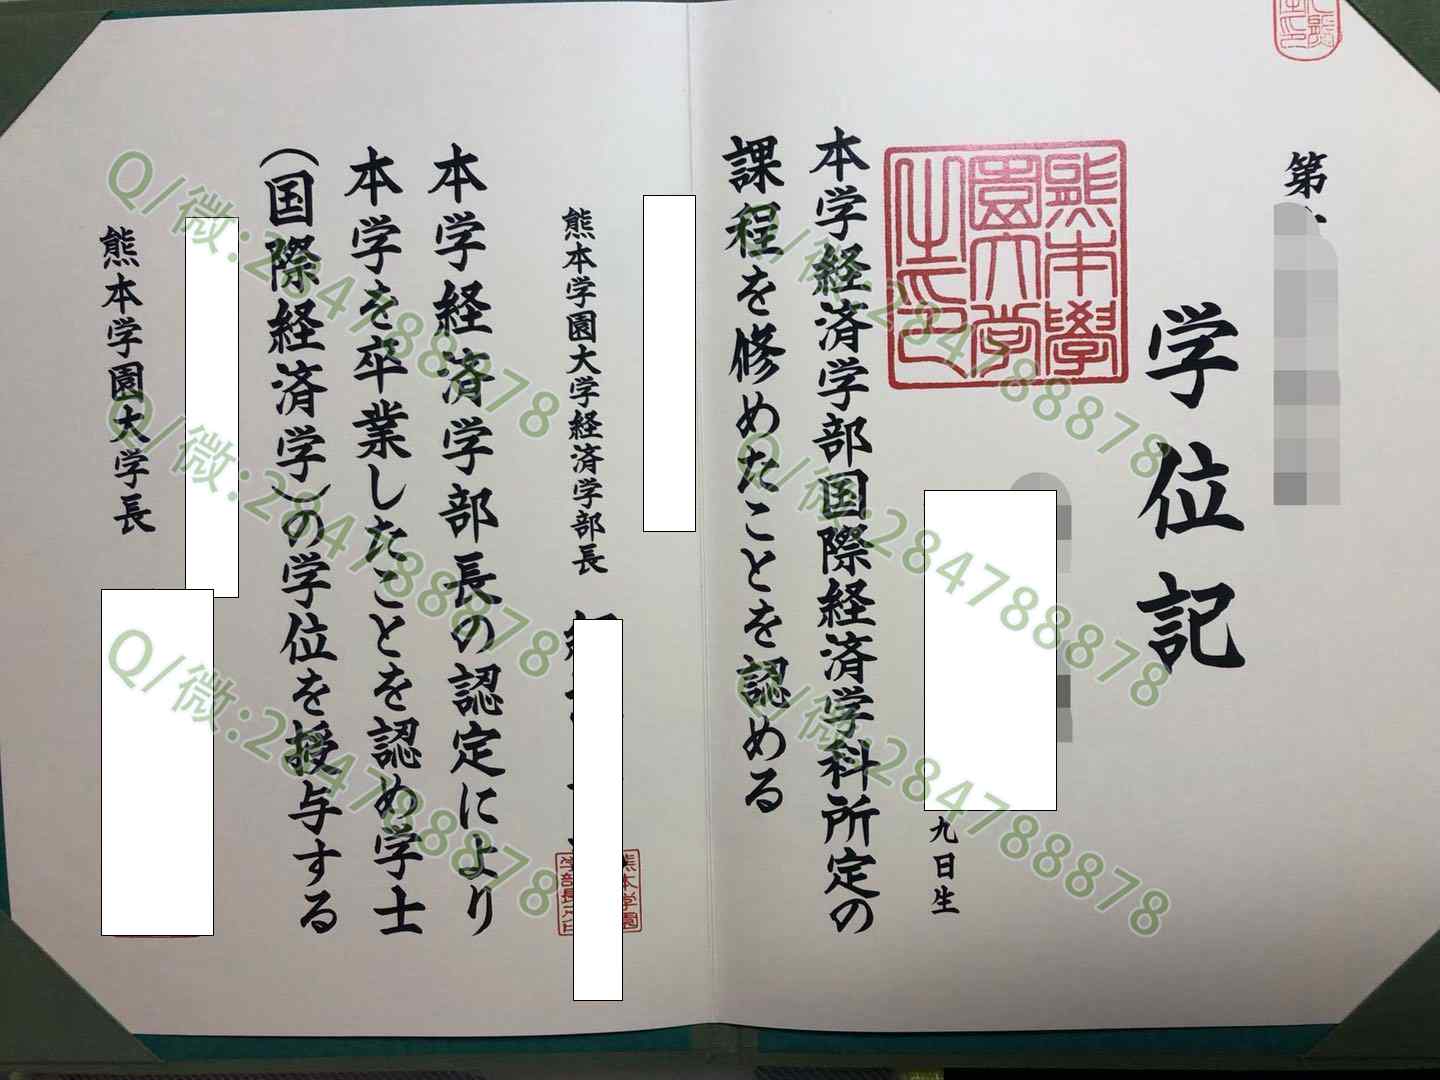 第
学位記
熊本學園大学之印
九日生
本学経済学部国際経済学科所定の
課程を修めたことを認める
熊本学園大学経済学部長
本学経済学部長の認定により
本学を卒業したことを認め学士
（国際経済学）の学位を授与する
熊本学園大学長
Q/微:284788878
Q/微:284788878
Q/微:284788878
Q/微:284788878
Q/微:284788878
Q/微:284788878